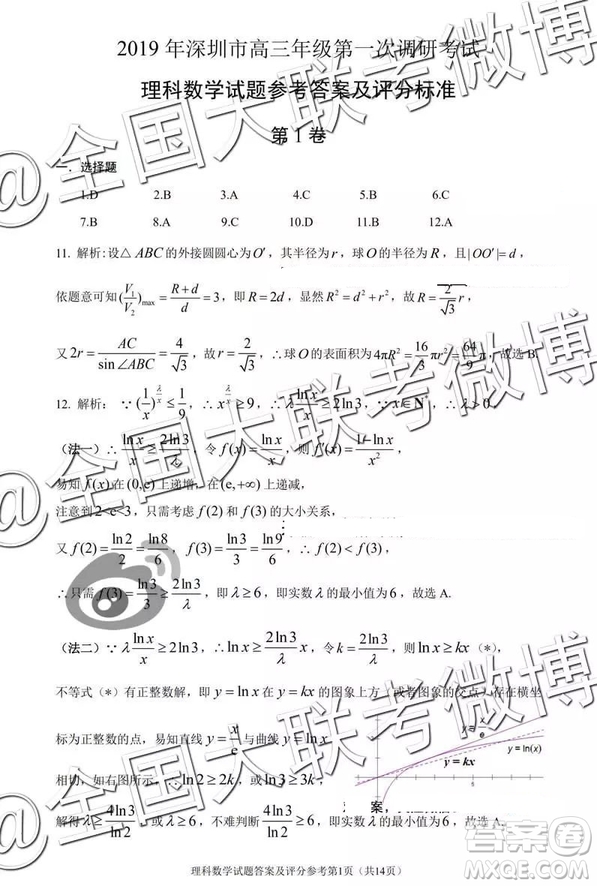 2019 年深圳市高三年级第一次调研考试
理科数学试题参考答案及评分标准
第 1 卷
一．选择题
1.D 2.B 3.A 4.C 5.B 6.C
7.B 8.A 9.C 10.D 11.B 12.A
11. 解析:设△ABC的外接圆圆心为O′，其半径为r，球O的半径为R，且|OO′|=d，
依题意可知(V₁/V₂)max = (R+d)/d = 3，即R=2d，显然R²=d²+r²，故R=(2/√3)r，
又2r = AC/sin∠ABC = 4/√3，故r=2/√3，∴球O的表面积为4πR²=(16/3)πr²=(64/9)π，故选B.
12. 解析：∵(1/x)^(λ/x) ≤ 1/9，∴x^(λ/x) ≥ 9，∴λ(ln x)/x ≥ 2ln3，∵x∈N*，∴λ>0，
（法一）∴(ln x)/x ≥ (2ln3)/λ，令f(x)=(ln x)/x，则f′(x)=(1−ln x)/x²，
易知f(x)在(0,e)上递增，在(e,+∞)上递减，
注意到2<e<3，只需考虑f(2)和f(3)的大小关系，
又f(2)=(ln2)/2=(ln8)/6，f(3)=(ln3)/3=(ln9)/6，∴f(2)<f(3)，
∴只需f(3)=(ln3)/3≥(2ln3)/λ，即λ≥6，即实数λ的最小值为6，故选A.
（法二）∵λ(ln x)/x≥2ln3，∴ln x≥(2ln3)/λ x，令k=(2ln3)/λ，则ln x≥kx（*），
不等式（*）有正整数解，即y=ln x在y=kx的图象上方（或者图象的交点）存在横坐
标为正整数的点，易知直线y=x/e与曲线y=ln x
相切，如右图所示，∴ln2≥2k，或ln3≥3k，
解得λ≥(4ln3)/(ln2)，或λ≥6，不难判断(4ln3)/(ln2)≥6，即实数λ的最小值为6，故选A.
案，
y=x/e
y = ln(x)
y = kx
5
理科数学试题答案及评分参考第1页（共14页）
@全国大联考微博
@全国大联考微博
@全国大联考微博
答案圈